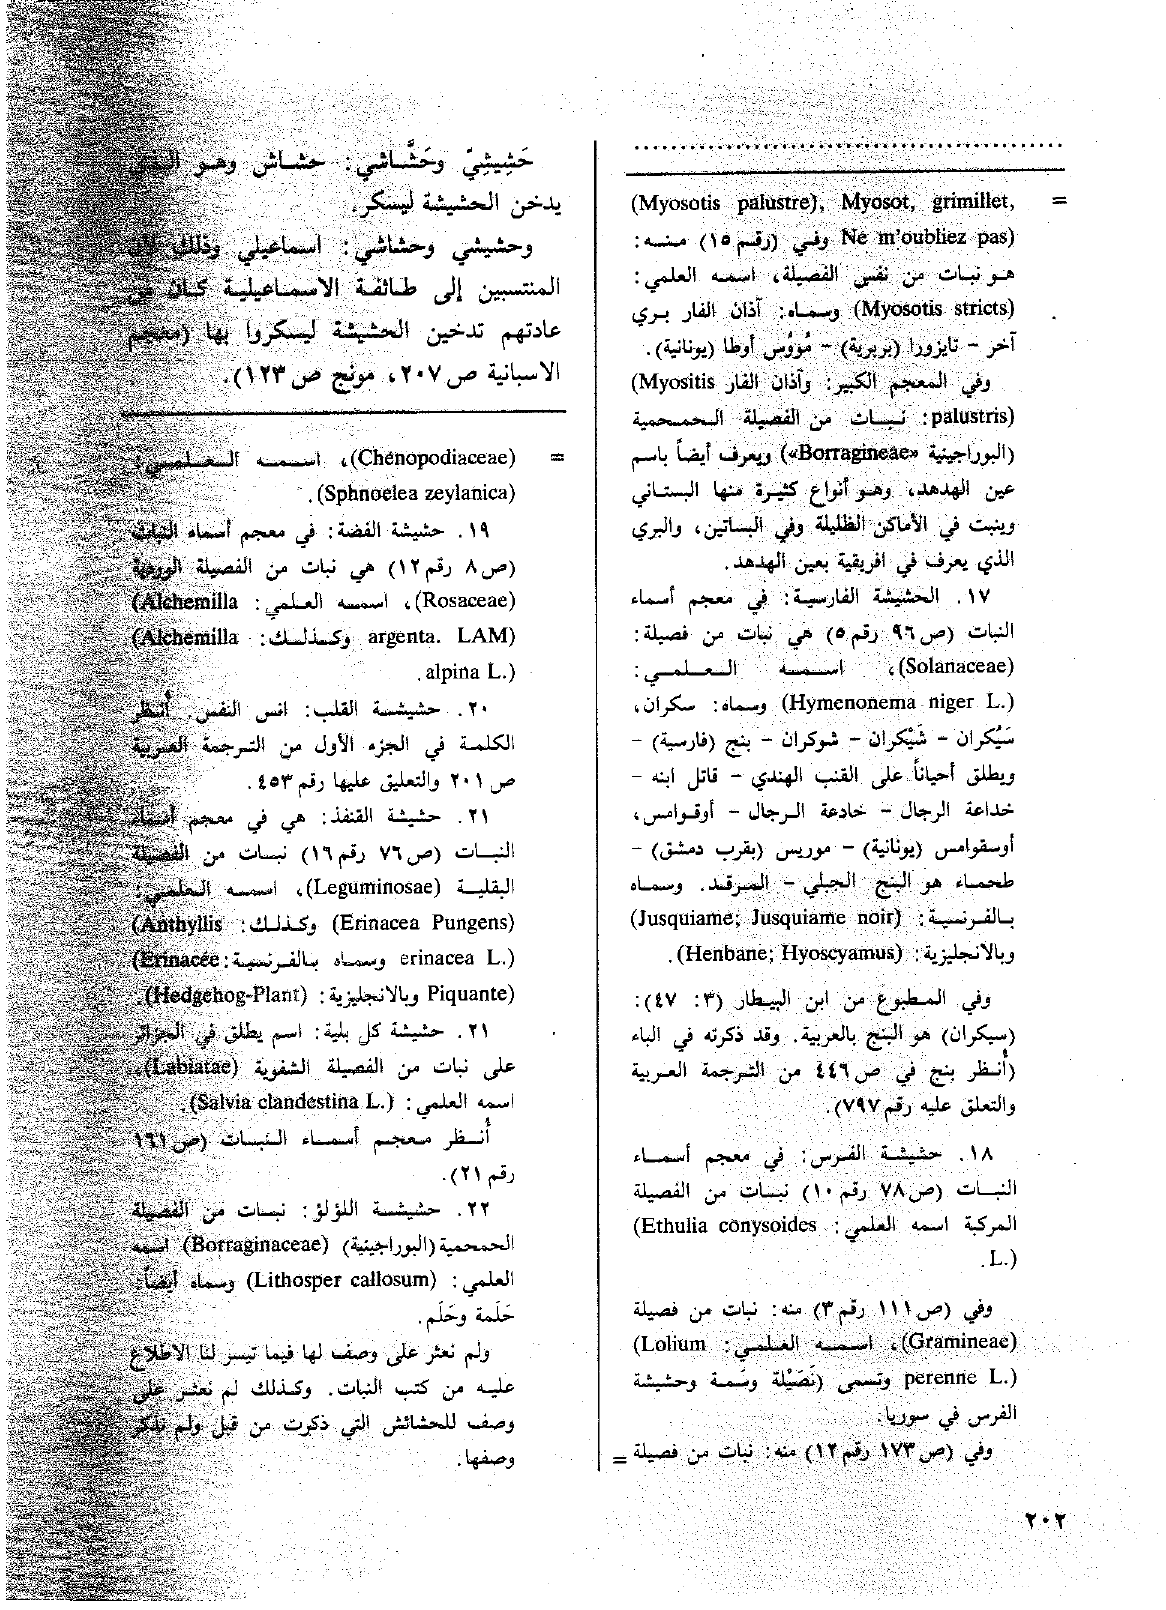 ..........................................
= (Myosotis palustre), Myosot, grimillet,
Ne m'oubliez pas) وفي (رقم ١٥) منه:
هو نبات من نفس الفصيلة، اسمه العلمي:
(Myosotis stricts) وسماه: آذان الفار بري
آخر - تايزورا (بربرية) - مُوؤُس أوطا (يونانية).
وفي المعجم الكبير: وآذان الفار (Myositis
palustris): نبات من الفصيلة الحمحمية
(البوراجينية «Borragineae») ويعرف أيضاً باسم
عين الهدهد، وهو أنواع كثيرة منها البستاني
وينبت في الأماكن الظليلة وفي البساتين، والبري
الذي يعرف في افريقية بعين الهدهد.
١٧. الحشيشة الفارسية: في معجم أسماء
النبات (ص٩٦ رقم ٥) هي نبات من فصيلة:
(Solanaceae)، اسمه العلمي:
(Hymenonema niger L.) وسماه: سكران،
سَيْكران - شَيْكران - شوكران - بنج (فارسية) -
ويطلق أحياناً على القنب الهندي - قاتل ابنه -
خداعة الرجال - خادعة الرجال - أوقوامس،
أوسقوامس (يونانية) - موريس (بقرب دمشق) -
طحماء هو البنج الجبلي - المرقد. وسماه
بالفرنسية: (Jusquiame; Jusquiame noir)
وبالانجليزية: (Henbane; Hyoscyamus).
وفي المطبوع من ابن البيطار (٣: ٤٧):
(سيكران) هو البنج بالعربية. وقد ذكرته في الباء
(أنظر بنج في ص٤٤٦ من الترجمة العربية
والتعلق عليه رقم ٧٩٧).
١٨. حشيشة الفرس: في معجم أسماء
النبات (ص٧٨ رقم ١٠) نبات من الفصيلة
المركبة اسمه العلمي: (Ethulia conysoides
L.).
وفي (ص١١١ رقم ٣) منه: نبات من فصيلة
(Gramineae)، اسمه العلمي: (Lolium
perenne L.) وتسمى (نَصَيْلة وسمة وحشيشة
الفرس في سوريا.
وفي (ص١٧٣ رقم ١٢) منه: نبات من فصيلة =
حَشِيشِيّ وحَشَّاشي: حشاش وهو
يدخن الحشيشة ليسكر.
وحشيشي وحشاشي: اسماعيلي وذلك
المنتسبين إلى طائفة الاسماعيلية كان من
عادتهم تدخين الحشيشة ليسكروا بها (معجم
الاسبانية ص٢٠٧، مونج ص١٢٣).
= (Chenopodiaceae)، اسمه العلمي:
(Sphnoelea zeylanica).
١٩. حشيشة الفضة: في معجم أسماء النبات
(ص٨ رقم ١٢) هي نبات من الفصيلة الوردية
(Rosaceae)، اسمه العلمي: (Alchemilla
argenta. LAM) وكذلك: (Alchemilla
alpina L.).
٢٠. حشيشة القلب: انس النفس. أنظر
الكلمة في الجزء الأول من الترجمة العربية
ص ٢٠١ والتعليق عليها رقم ٤٥٣.
٢١. حشيشة القنفذ: هي في معجم أسماء
النبات (ص٧٦ رقم ١٦) نبات من الفصيلة
البقلية (Leguminosae)، اسمه العلمي:
(Erinacea Pungens) وكذلك: (Anthyllis
erinacea L.) وسماه بالفرنسية: (Erinacée
Piquante) وبالانجليزية: (Hedgehog-Plant).
٢١. حشيشة كل بلية: اسم يطلق في الجزائر
على نبات من الفصيلة الشفوية (Labiatae)،
اسمه العلمي: (Salvia clandestina L.).
أنظر معجم أسماء النبات (ص١٦١
رقم ٢١).
٢٢. حشيشة اللؤلؤ: نبات من الفصيلة
الحمحمية (البوراجينية) (Borraginaceae) اسمه
العلمي: (Lithosper callosum) وسماه أيضاً:
حَلَمة وحَلَم.
ولم نعثر على وصف لها فيما تيسر لنا الاطلاع
عليه من كتب النبات. وكذلك لم نعثر على
وصف للحشائش التي ذكرت من قبل ولم نذكر
وصفها.
٢٠٢